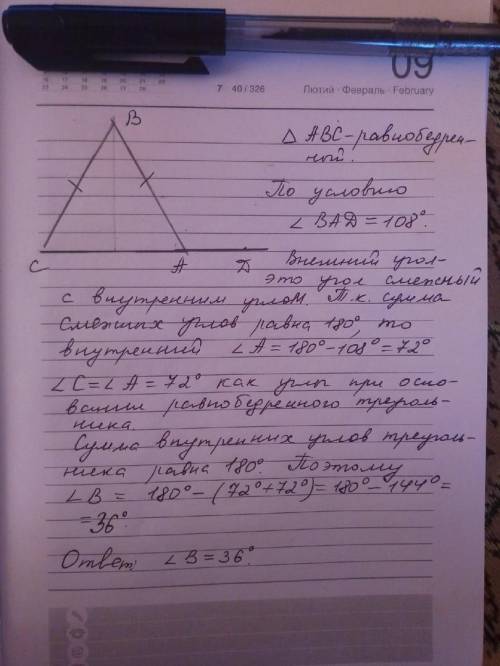 09
7 40 / 326 Лютий · Февраль · February
B
△ ABC - равнобедрен-
ный.
По условию
∠BAD = 108°.
C A D
Внешний угол-
это угол смежный
с внутренним углом. Т.к. сумма
смежных углов равна 180°, то
внутренний ∠A = 180° - 108° = 72°
∠C = ∠A = 72° как углы при осно-
вании равнобедренного треуголь-
ника.
Сумма внутренних углов треуголь-
ника равна 180°. Поэтому
∠B = 180° - (72° + 72°) = 180° - 144° =
= 36°
Ответ: ∠B = 36°.